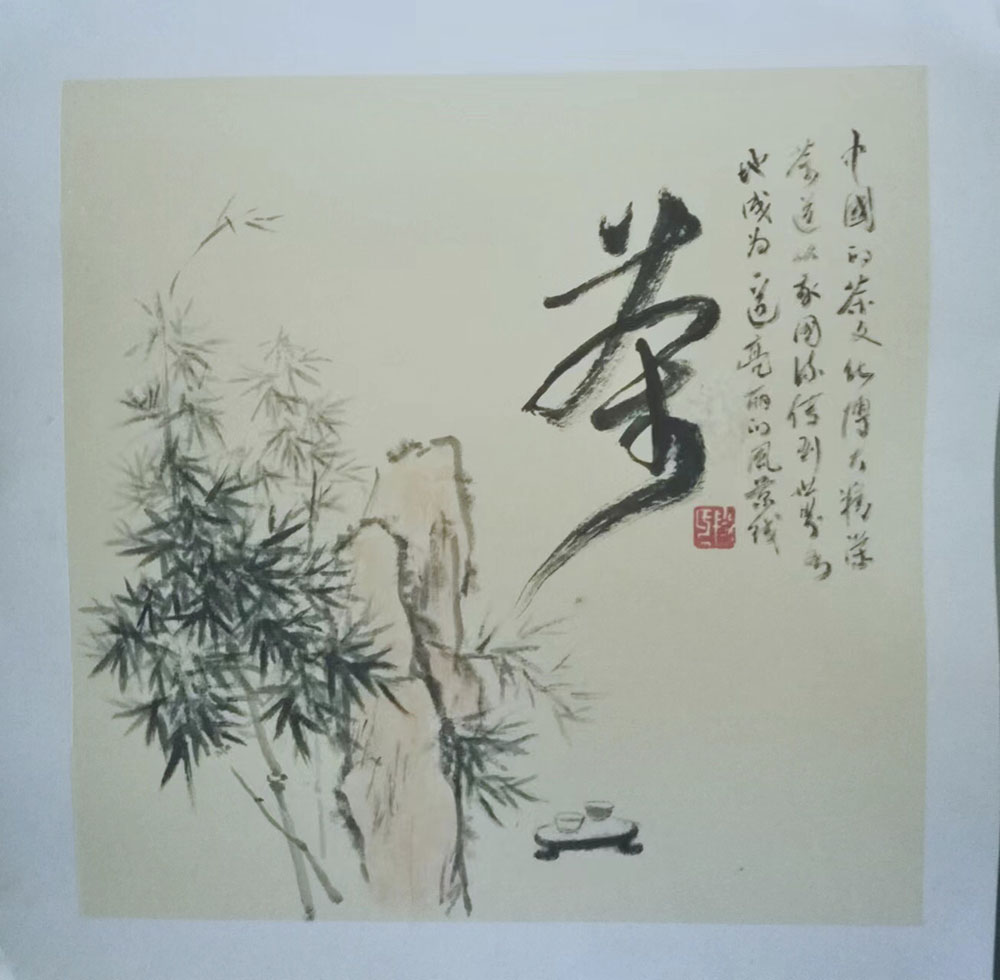 中國的茶文化博大精深
茶道从我国流传到世界各
地成为一道亮丽的風景线
茶